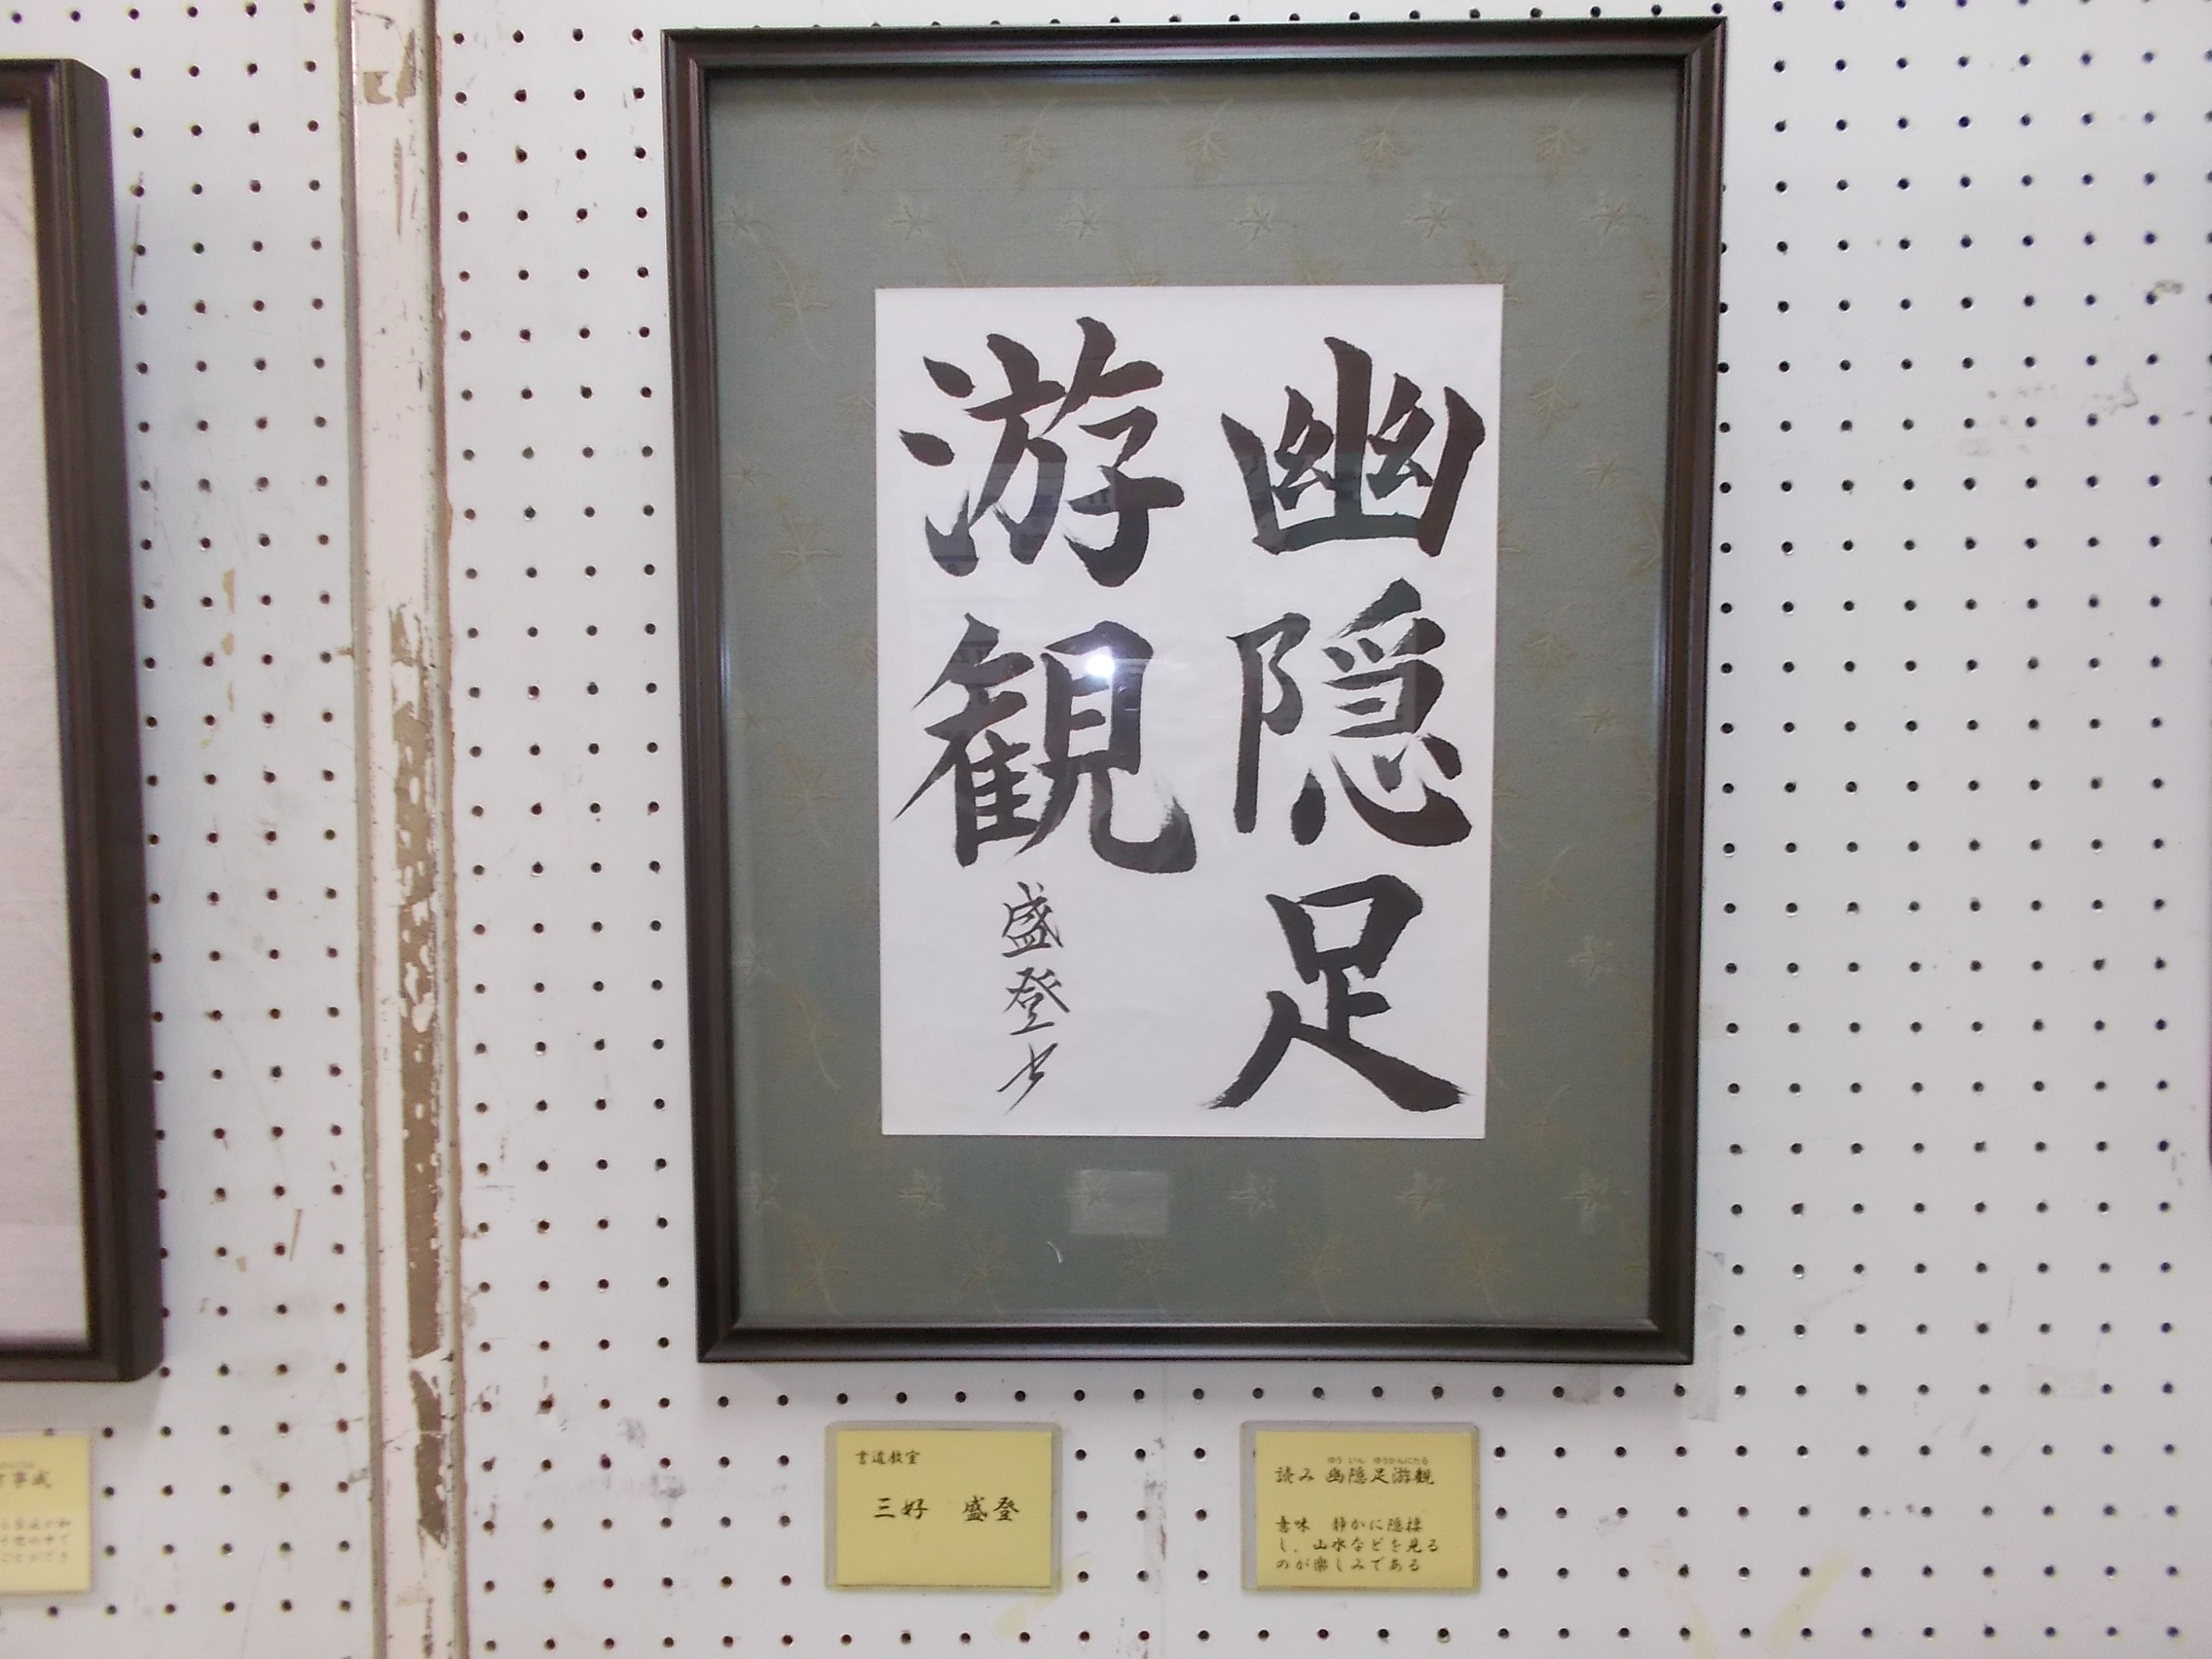 幽隠足
游観
盛登書
書道教室
三好 盛登
ゆう いん ゆうかんにたる
読み 幽隠足游観
意味 静かに隠棲
し、山水などを見る
のが楽しみである